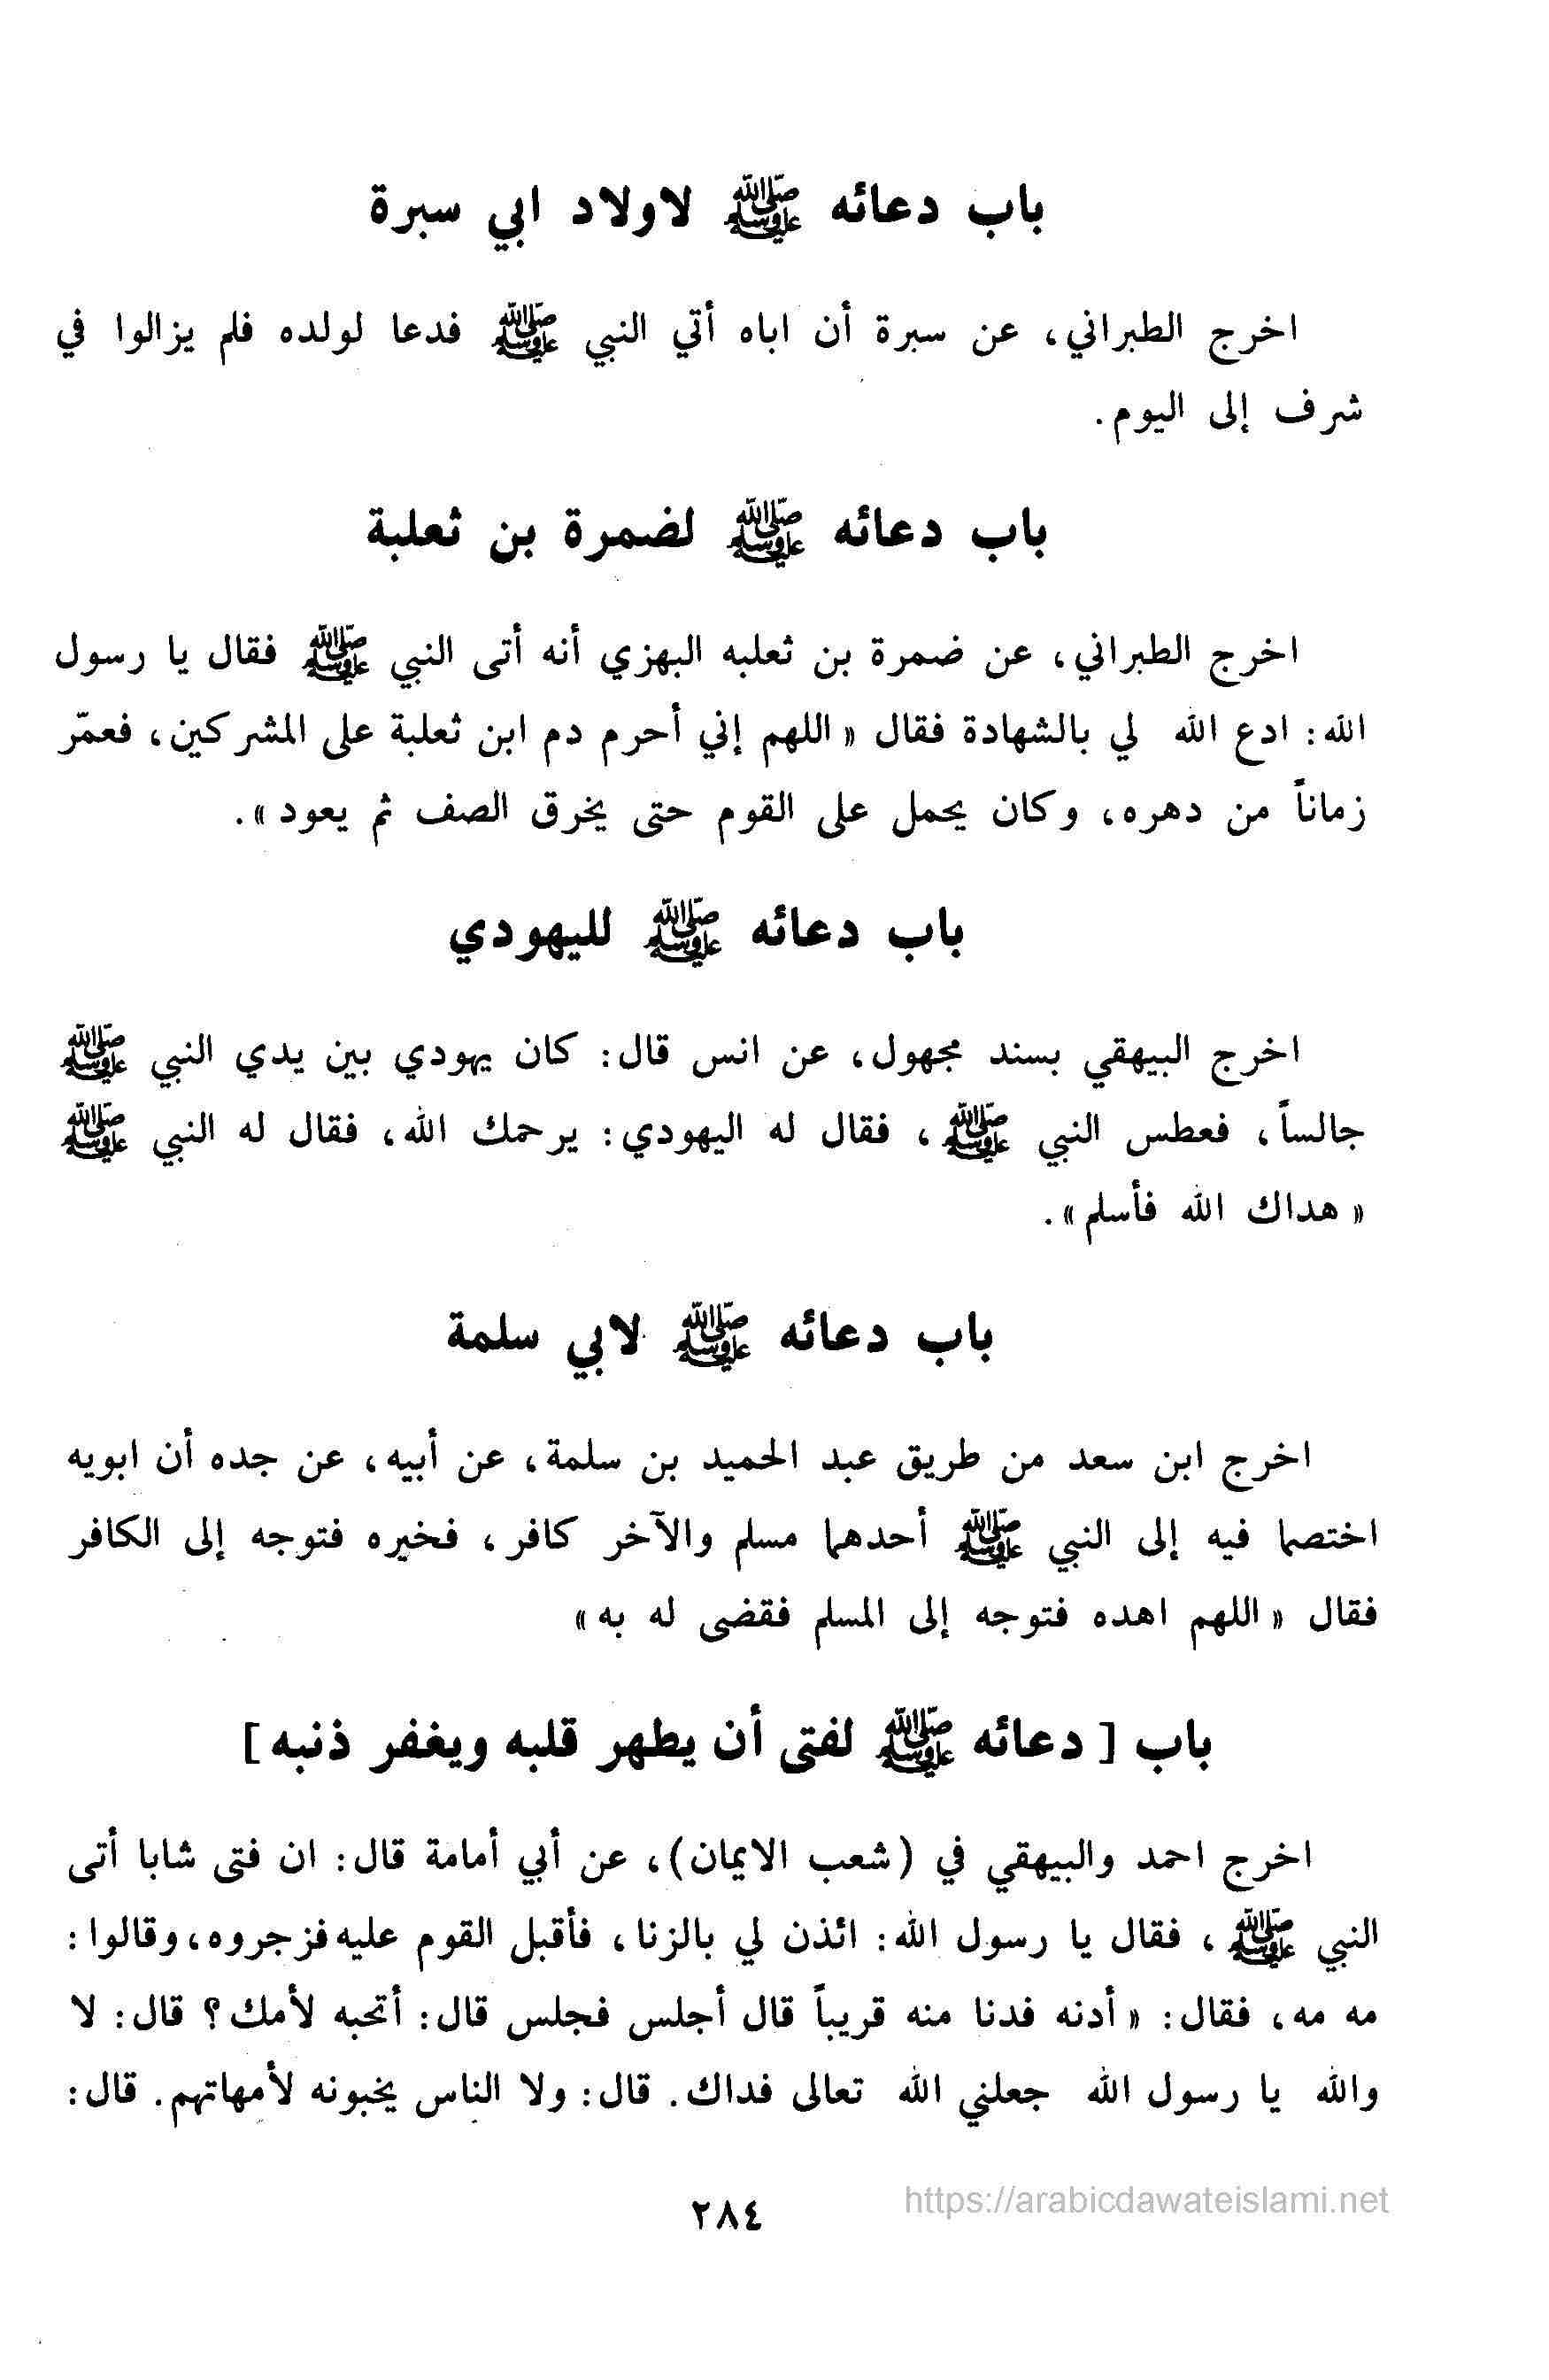 باب دعائه ﷺ لاولاد ابي سبرة
اخرج الطبراني، عن سبرة أن اباه أتي النبي ﷺ فدعا لولده فلم يزالوا في
شرف إلى اليوم.
باب دعائه ﷺ لضمرة بن ثعلبة
اخرج الطبراني، عن ضمرة بن ثعلبه البهزي أنه أتى النبي ﷺ فقال يا رسول
الله: ادع الله لي بالشهادة فقال « اللهم إني أحرم دم ابن ثعلبة على المشركين، فعمّر
زماناً من دهره، وكان يحمل على القوم حتى يخرق الصف ثم يعود».
باب دعائه ﷺ لليهودي
اخرج البيهقي بسند مجهول، عن انس قال: كان يهودي بين يدي النبي ﷺ
جالساً، فعطس النبي ﷺ، فقال له اليهودي: يرحمك الله، فقال له النبي ﷺ
« هداك الله فأسلم».
باب دعائه ﷺ لابي سلمة
اخرج ابن سعد من طريق عبد الحميد بن سلمة، عن أبيه، عن جده أن ابويه
اختصما فيه إلى النبي ﷺ أحدهما مسلم والآخر كافر، فخيره فتوجه إلى الكافر
فقال « اللهم اهده فتوجه إلى المسلم فقضى له به»
باب [ دعائه ﷺ لفتى أن يطهر قلبه ويغفر ذنبه]
اخرج احمد والبيهقي في (شعب الايمان)، عن أبي أمامة قال: ان فتى شابا أتى
النبي ﷺ، فقال يا رسول الله: ائذن لي بالزنا، فأقبل القوم عليه فزجروه، وقالوا:
مه مه، فقال: « أدنه فدنا منه قريباً قال أجلس فجلس قال: أتحبه لأمك؟ قال: لا
والله يا رسول الله جعلني الله تعالى فداك. قال: ولا الناس يخبونه لأمهاتهم. قال:
٢٨٤
https://arabicdawateislami.net